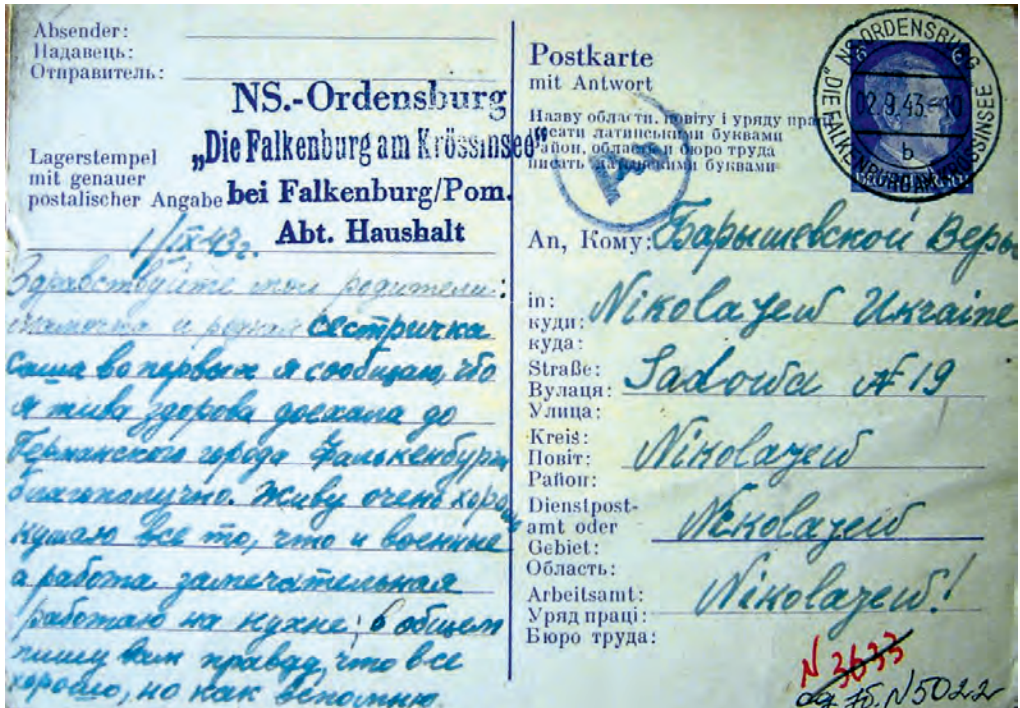 Absender:
Надавець:
Отправитель:
NS.-Ordensburg
„Die Falkenburg am Krössinsee“
bei Falkenburg/Pom.
Abt. Haushalt
Lagerstempel
mit genauer
postalischer Angabe
1/IX 43г.
Здравствуйте мои родители:
мамочка и родная сестричка
Саша во первых я сообщаю, что
я жива здорова доехала до
Германского города Фалькенбург
благополучно. Живу очень хорошо
кушаю все то, что и военные
а работа замечательная
работаю на кухне; в общем
пишу вам правду, что все
хорошо, но как вспомню
Postkarte
mit Antwort
Назву области, повіту і уряду праці
писати латинськими буквами
Район, область и бюро труда
писать латинскими буквами
A
NS ORDENSBURG
„DIE FALKENBURG AM KRÖSSINSEE
02.9.43-10
b
6 6
An, Кому: Барышевской Веры
in:
куди:
куда:
Nikolajew Ukraine
Straße:
Вулаця:
Улица:
Sadowa № 19
Kreis:
Повіт:
Район:
Nikolajew
Dienstpost-
amt oder
Gebiet:
Область:
Nikolajew
Arbeitsamt:
Уряд праці:
Бюро труда:
Nikolajew!
N 3633
N 5022